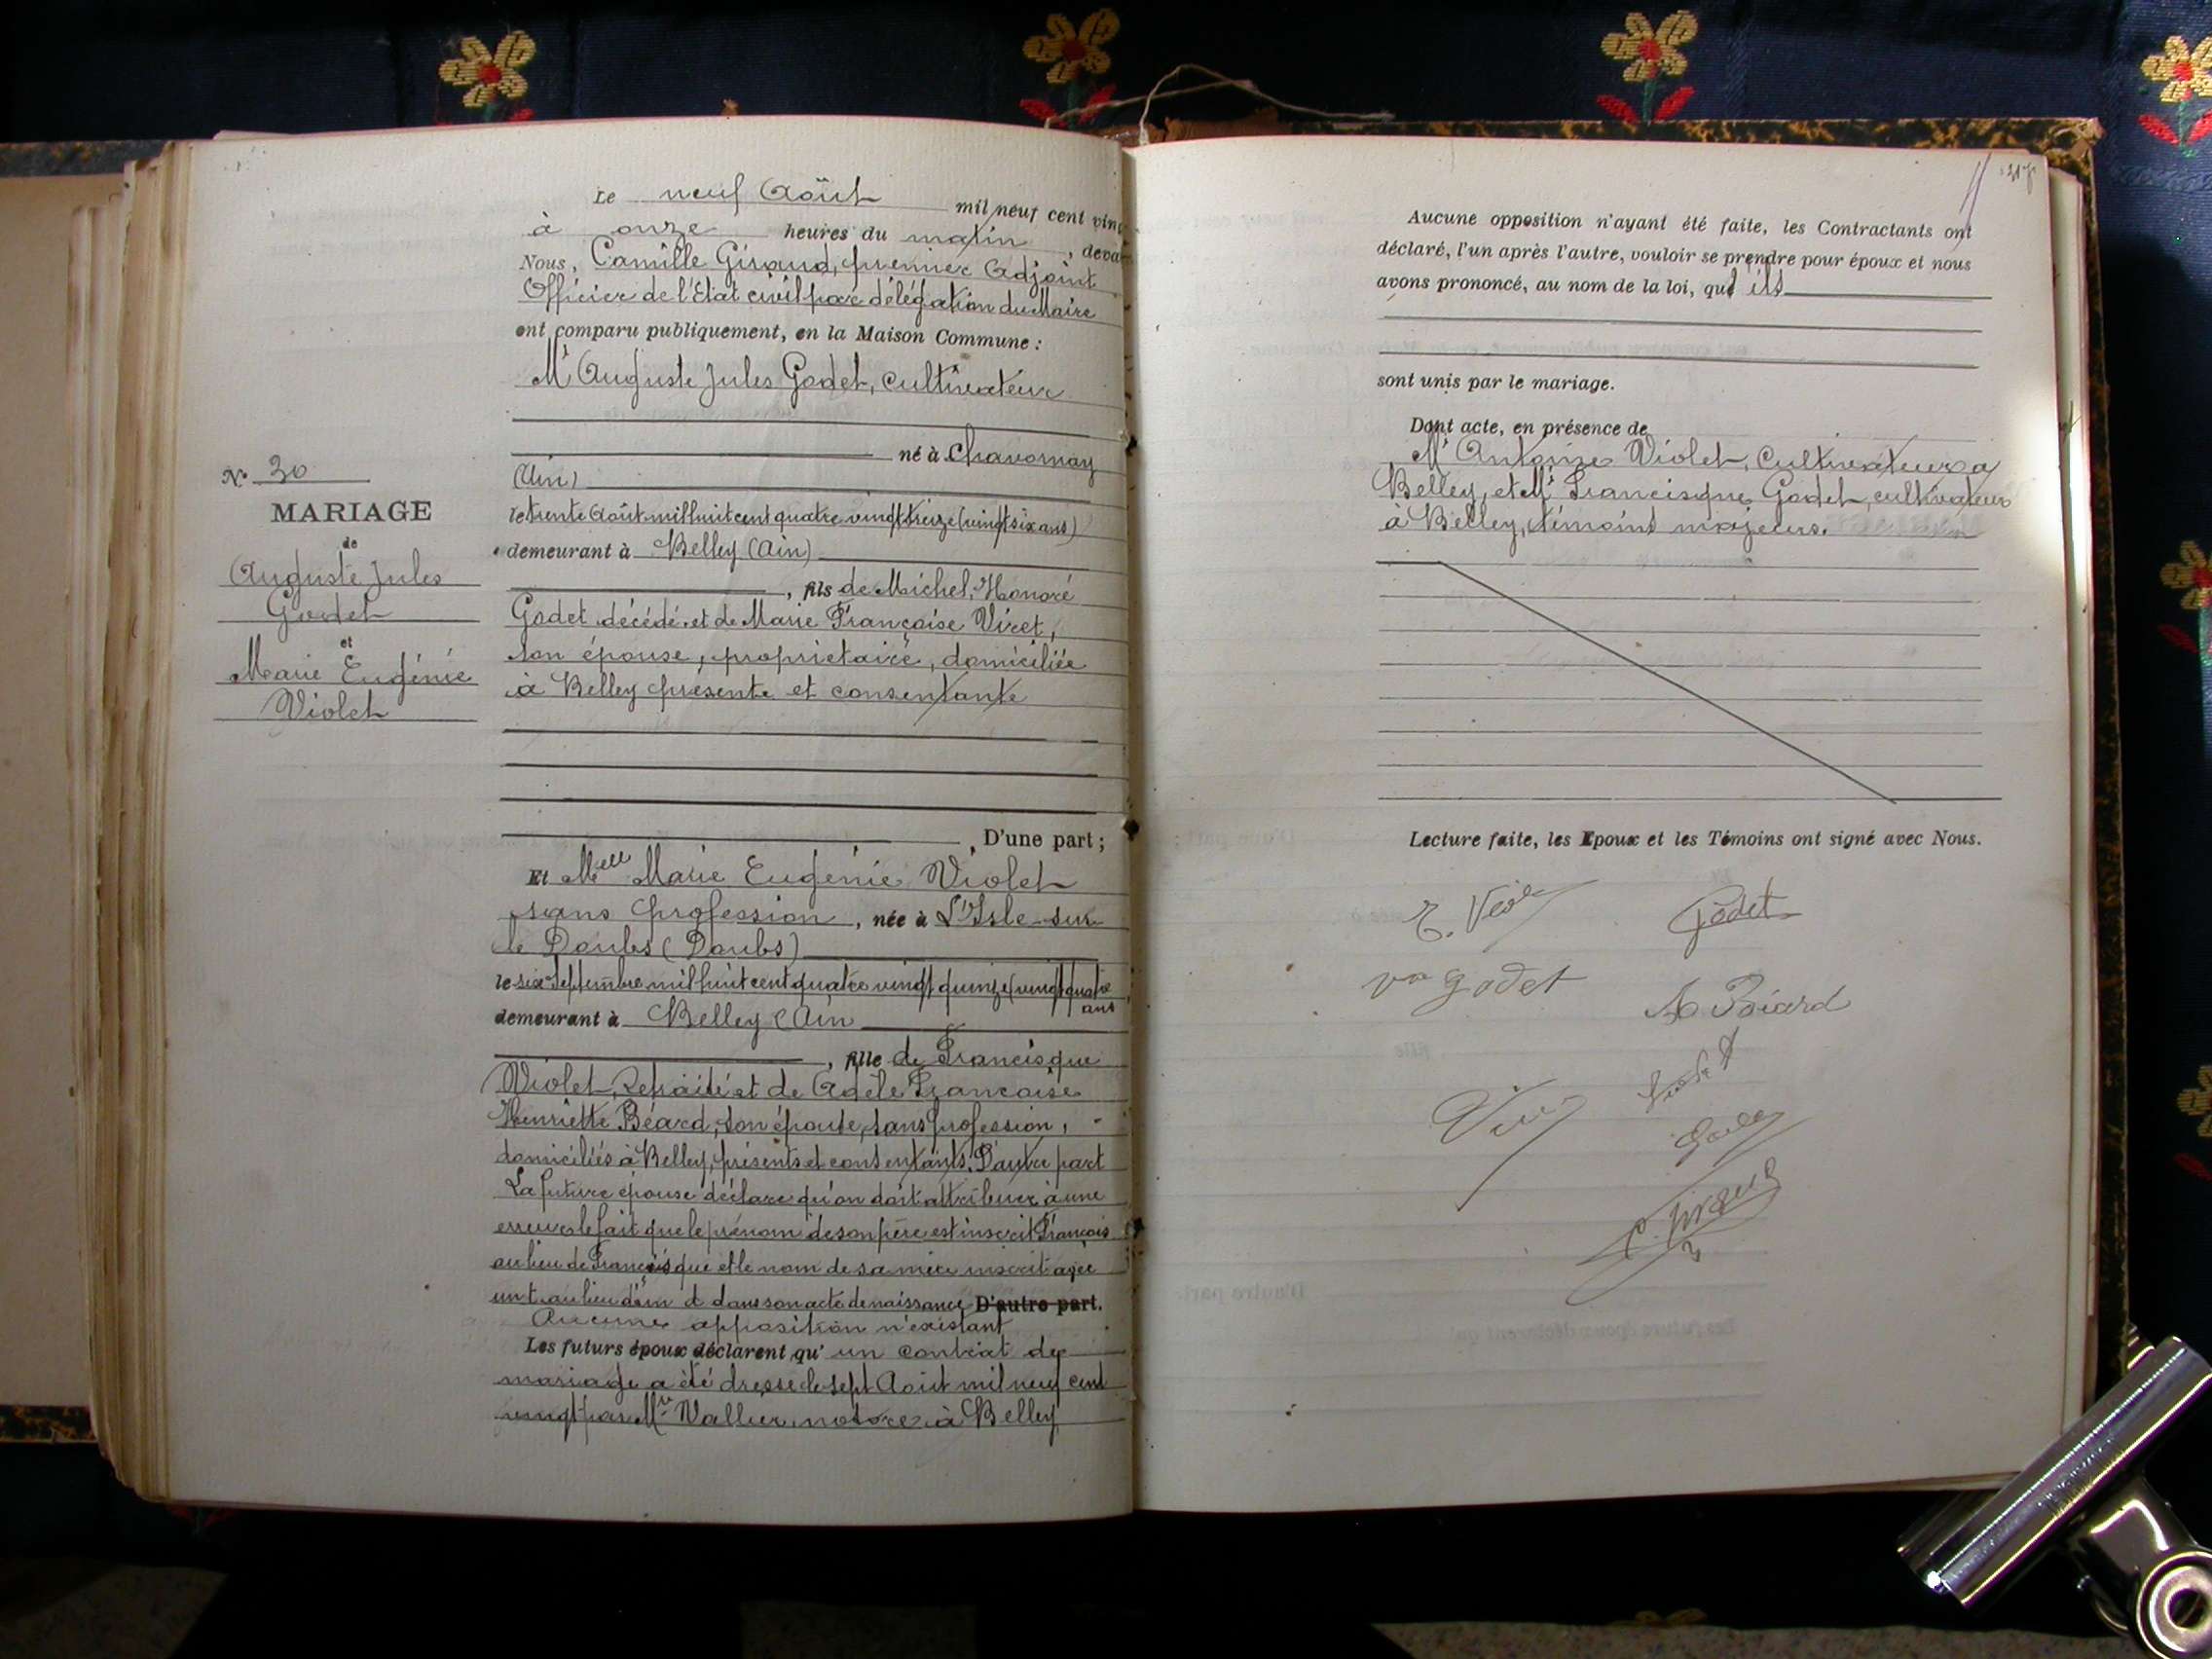 Le neuf Août mil neuf cent ving
à onze heures du matin, deva
Nous, Camille Giraud, premier Adjoint
Officier de l'Etat civil par délégation du Maire
ont comparu publiquement, en la Maison Commune :
Mr Auguste Jules Godet, cultivateur
né à Chavornay
(Ain)
le trente Août mil huit cent quatre vingt treize (vingt six ans)
demeurant à Belley (Ain)
, fils de Michel, Honoré
Godet décédé, et de Marie Françoise Viret,
son épouse, propriétaire, domiciliée
à Belley présente et consentante
, D'une part ;
N° 30
MARIAGE
de
Auguste Jules
Godet
et
Marie Eugénie
Violet
Et Melle Marie Eugénie Violet
sans profession, née à L'Isle-sur
le Doubs (Doubs)
le six Septembre mil huit cent quatre vingt quinze (vingt quatre
ans
demeurant à Belley (Ain
, fille de Francisque
Violet, Retraité et de Adèle Françoise
Henriette Béard, son épouse, sans profession,
domiciliés à Belley, présents et consentants. D'autre part
La future épouse déclare qu'on doit attribuer à une
erreur le fait que le prénom de son père est inscrit François
au lieu de Francisque et le nom de sa mère inscrit avec
un t au lieu d'un d dans son acte de naissance D'autre part.
Aucune opposition n'existant
Les futurs époux déclarent qu'un contrat de
mariage a été dressé le sept Août mil neuf cent
vingt par Me Vallier, notaire à Belley
217
Aucune opposition n'ayant été faite, les Contractants ont
déclaré, l'un après l'autre, vouloir se prendre pour époux et nous
avons prononcé, au nom de la loi, que ils
sont unis par le mariage.
Dont acte, en présence de
Mr Antoine Violet, Cultivateur à
Belley, et Mr Francisque Godet, cultivateur
à Belley, témoins majeurs.
Lecture faite, les Epoux et les Témoins ont signé avec Nous.
Godet
ve Godet
C. Giraud